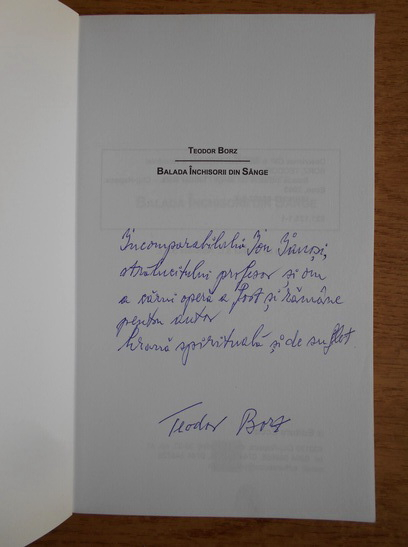 TEODOR BORZ
BALADA ÎNCHISORII DIN SÂNGE
Incomparabilului Ion Ianoși,
strălucitului profesor și om
a cărui operă a fost și rămâne
pentru autor
hrană spirituală și de suflet.
Teodor Borz